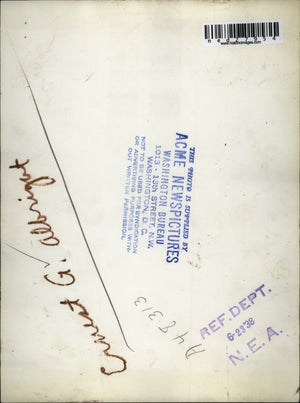 www.historicimages.com
THIS PHOTO IS SUPPLIED BY
ACME NEWSPICTURES
WASHINGTON BUREAU
1013 - 13th STREET, N.W.
WASHINGTON, D. C.
NOT TO BE USED FOR SYNDICATION
OR ADVERTISING PURPOSES WITH-
OUT WRITTEN PERMISSION.
Ernest G. Albright
A48313
REF. DEPT.
6-2338
N. E. A.